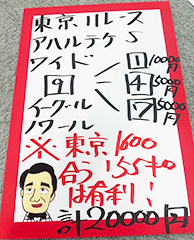 東京11レース
アハルテケS
ワイド
9 1 10000円
4 5000円
7 5000円
イーグル
ノワール
※東京1600
合う!55キロ
は有利!
計20000円